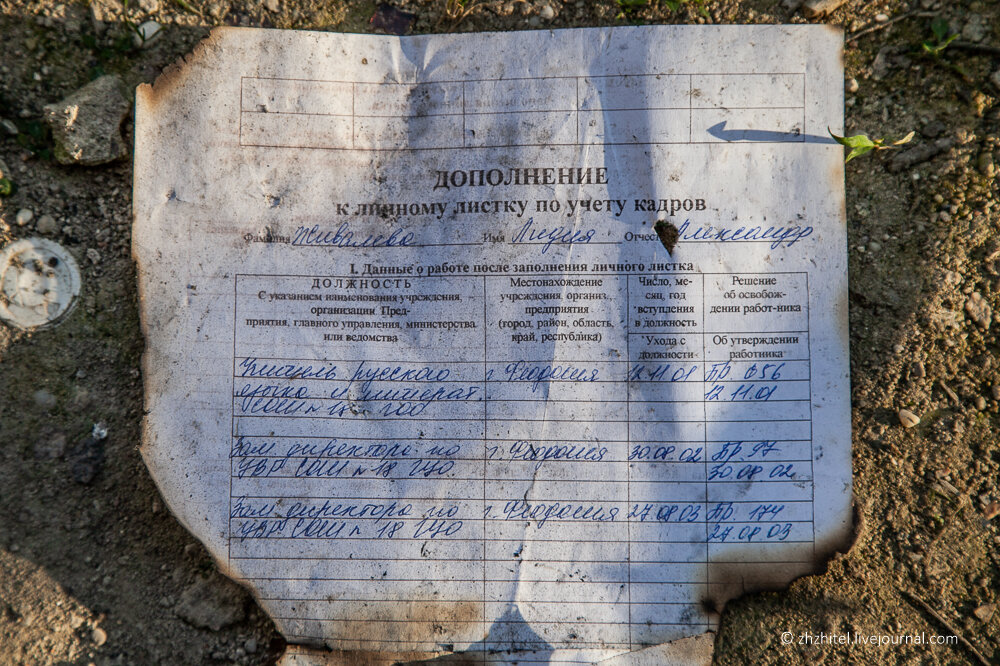 ДОПОЛНЕНИЕ
к личному листку по учету кадров
Фамилия Живалева Имя Лидия Отчест Александр
I. Данные о работе после заполнения личного листка
ДОЛЖНОСТЬ
С указанием наименования учреждения,
организации Пред-
приятия, главного управления, министерства
или ведомства
Местонахождение
учреждения, организ.,
предприятия
(город, район, область,
край, республика)
Число, ме-
сяц, год
вступления
в должность
Ухода с
должности
Решение
об освобож-
дении работ-ника
Об утверждении
работника
Учитель русского г. Феодосия 12.11.01 Пр 656
языка и литерат. 12.11.01
СОШ
Зам. директора по г. Феодосия 30.08.02 Пр 97
УВР СОШ № 18 30.08.02
Зам. директора по г. Феодосия 27.08.03 Пр 174
УВР СОШ № 18 27.08.03
© zhzhitel.livejournal.com